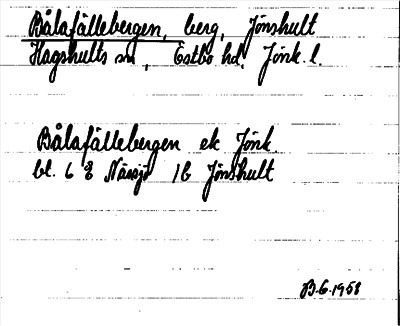 Bålafällebergen, berg, Jönshult
Hagshults sn, Östbo hd, Jönk. l.
Bålafällebergen ek Jönk.
bl. 6 8 Nässjö 1b Jönshult
B.G. 1958